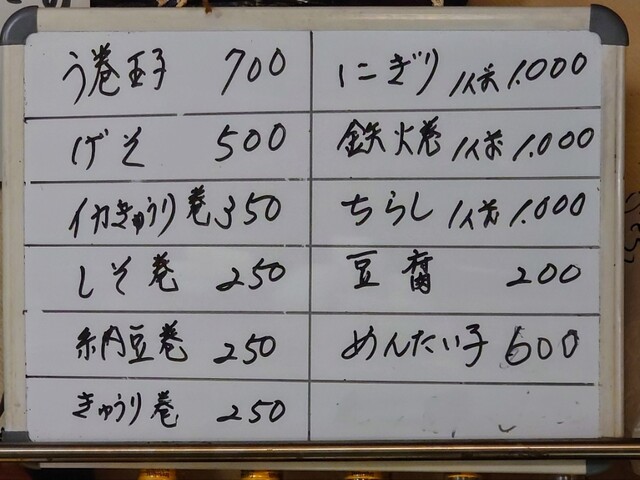 う巻玉子 700
げそ 500
イカきゅうり巻 350
しそ巻 250
納豆巻 250
きゅうり巻 250
にぎり 1人前 1.000
鉄火巻 1人前 1.000
ちらし 1人前 1.000
豆腐 200
めんたい子 600